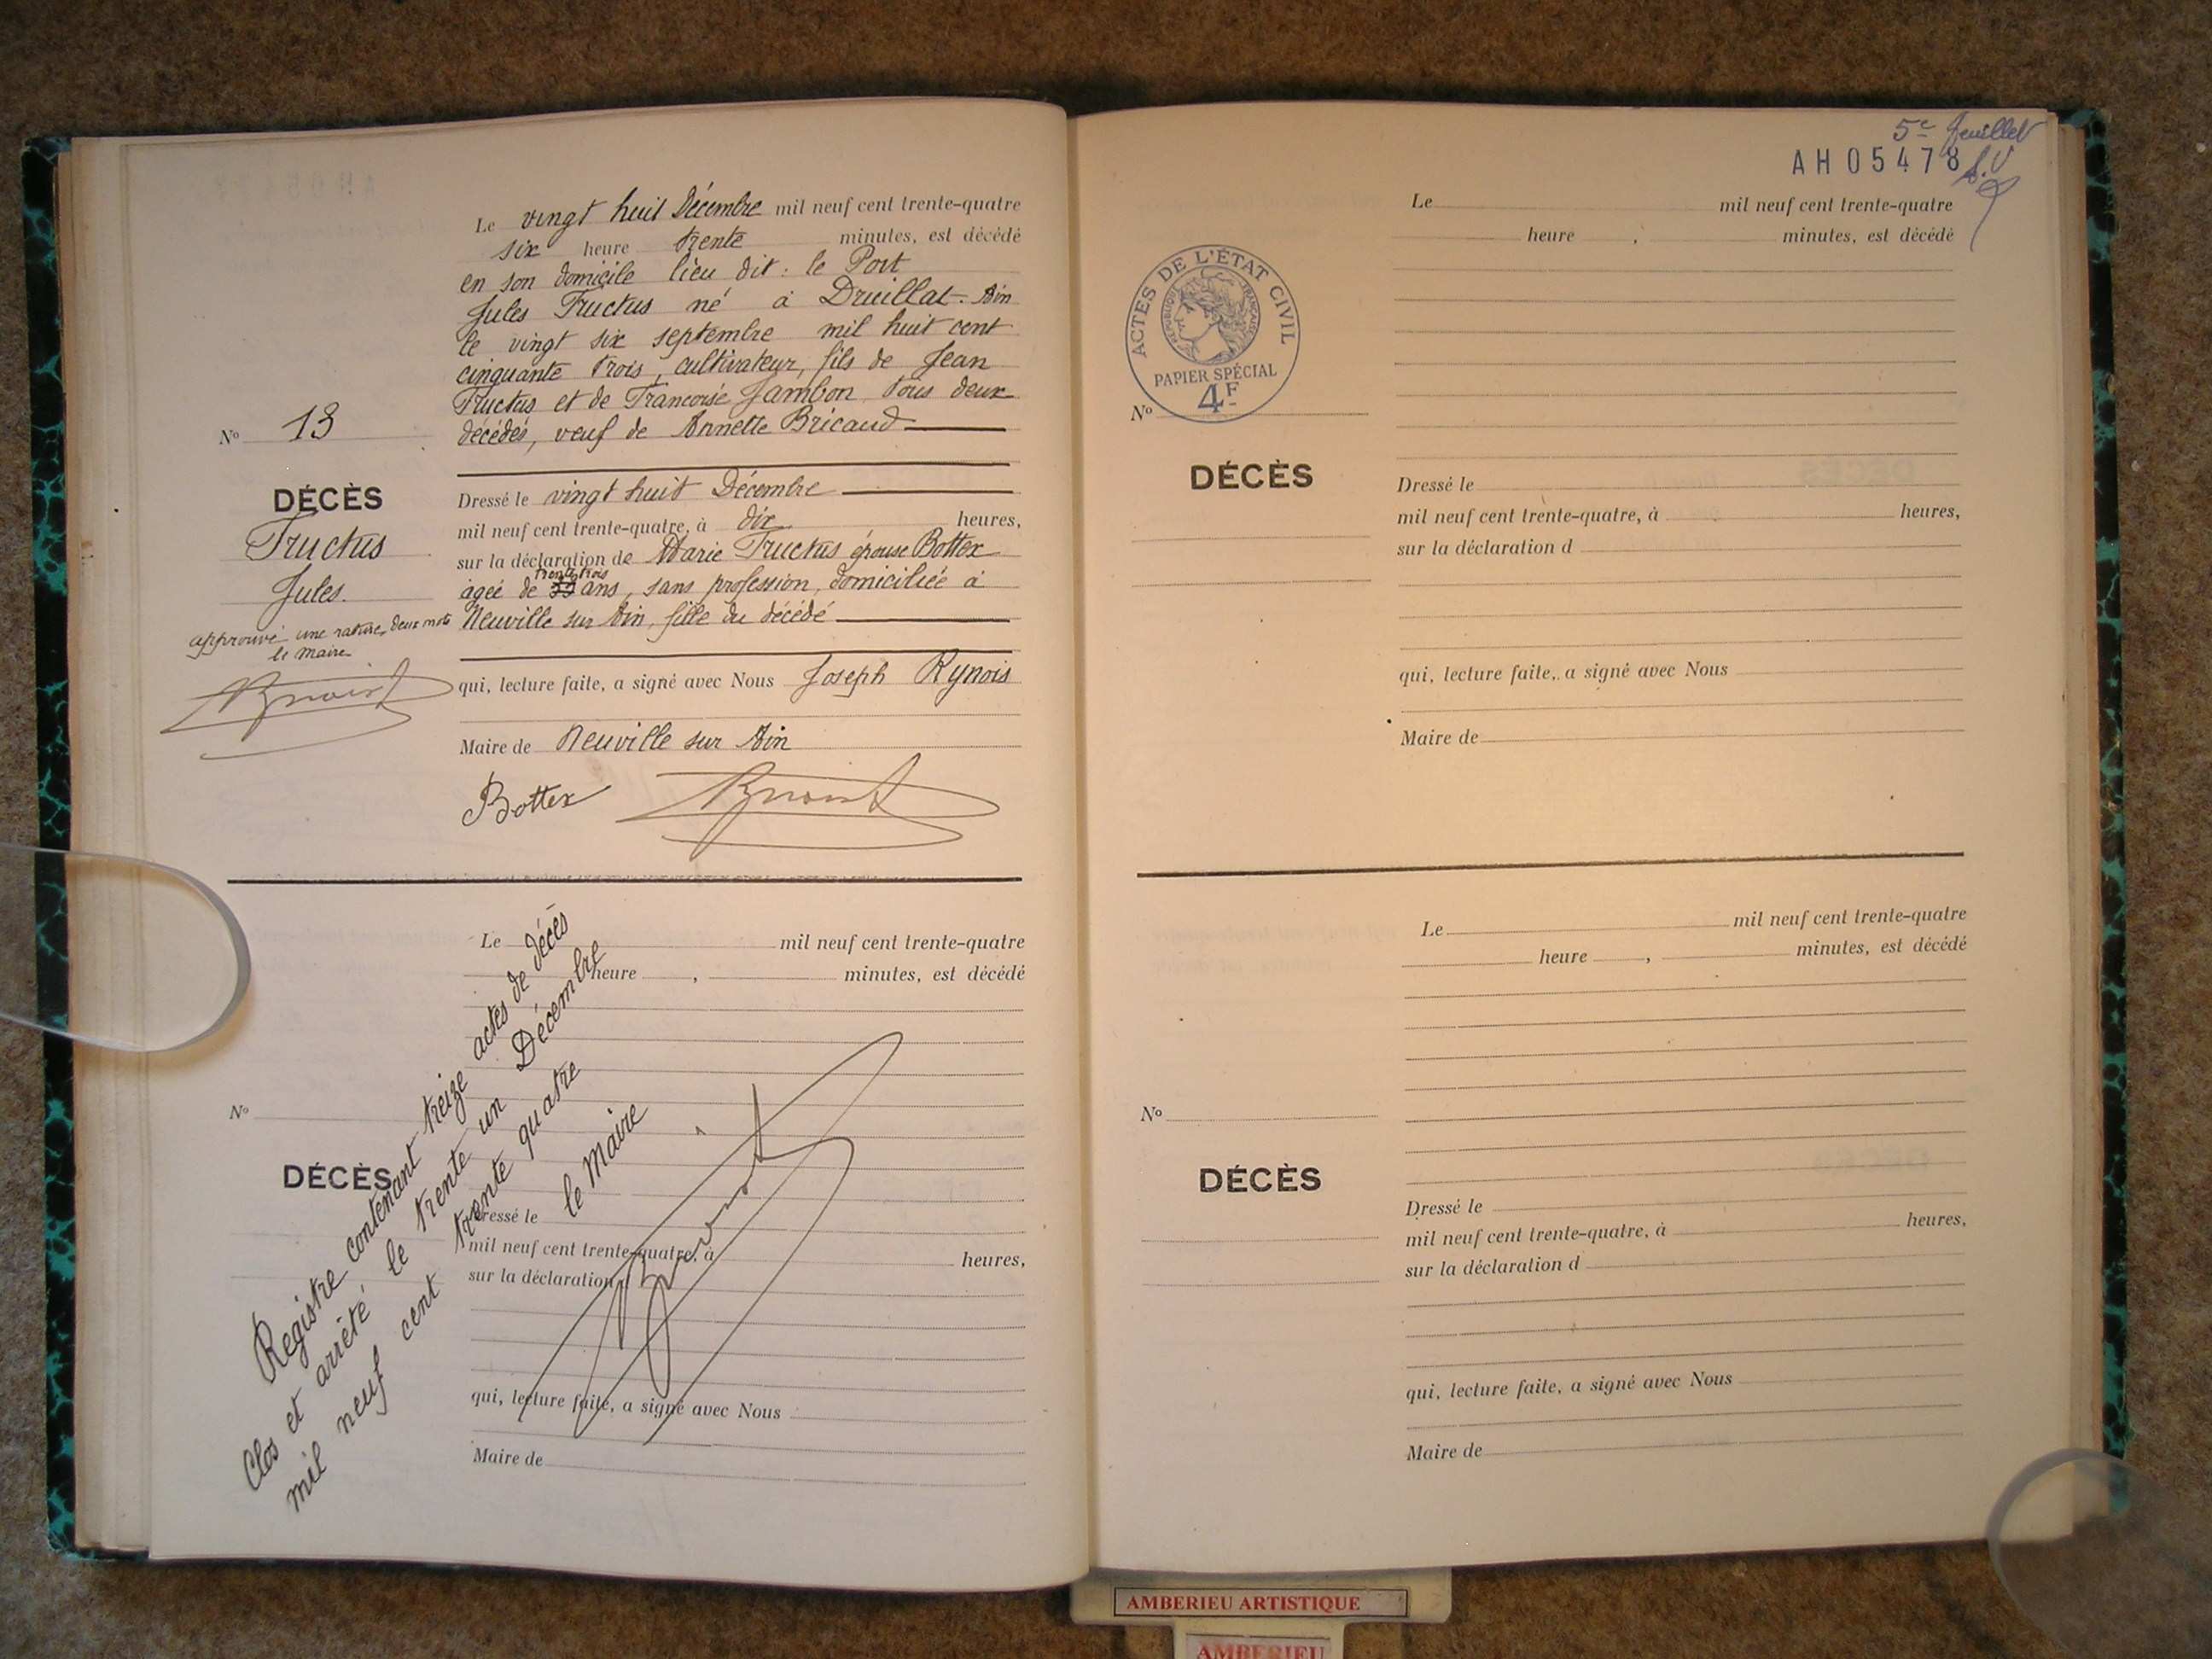 Le vingt huit Décembre mil neuf cent trente-quatre
six heure trente minutes, est décédé
en son domicile lieu dit : le Port
Jules Fructus né à Druillat - Ain
le vingt six septembre mil huit cent
cinquante trois, cultivateur, fils de Jean
Fructus et de Francoise Jambon tous deux
décédés, veuf de Annette Bricaud
No 13
DÉCÈS
Fructus
Jules.
approuvé une rature, deux mots
le maire
Dressé le vingt huit Décembre
mil neuf cent trente-quatre, à dix heures,
sur la déclaration de Marie Fructus épouse Bottex
trente trois
agée de ans, sans profession, domiciliée à
Neuville sur Ain, fille du décédé
qui, lecture faite, a signé avec Nous Joseph Rynois
Maire de Neuville sur Ain
Bottex
Le mil neuf cent trente-quatre
heure , minutes, est décédé
No
DÉCÈS
Dressé le
mil neuf cent trente-quatre, à heures,
sur la déclaration
qui, lecture faite, a signé avec Nous
Maire de
Registre contenant treize actes de décès
Clos et arrêté le trente un Décembre
mil neuf cent trente quatre
le Maire
5e feuillet
AH05478
Le mil neuf cent trente-quatre
heure , minutes, est décédé
ACTES DE L'ÉTAT CIVIL
RÉPUBLIQUE FRANÇAISE
PAPIER SPÉCIAL
4F
No
DÉCÈS
Dressé le
mil neuf cent trente-quatre, à heures,
sur la déclaration d
qui, lecture faite, a signé avec Nous
Maire de
Le mil neuf cent trente-quatre
heure , minutes, est décédé
No
DÉCÈS
Dressé le
mil neuf cent trente-quatre, à heures,
sur la déclaration d
qui, lecture faite, a signé avec Nous
Maire de
AMBERIEU ARTISTIQUE
AMBERIEU